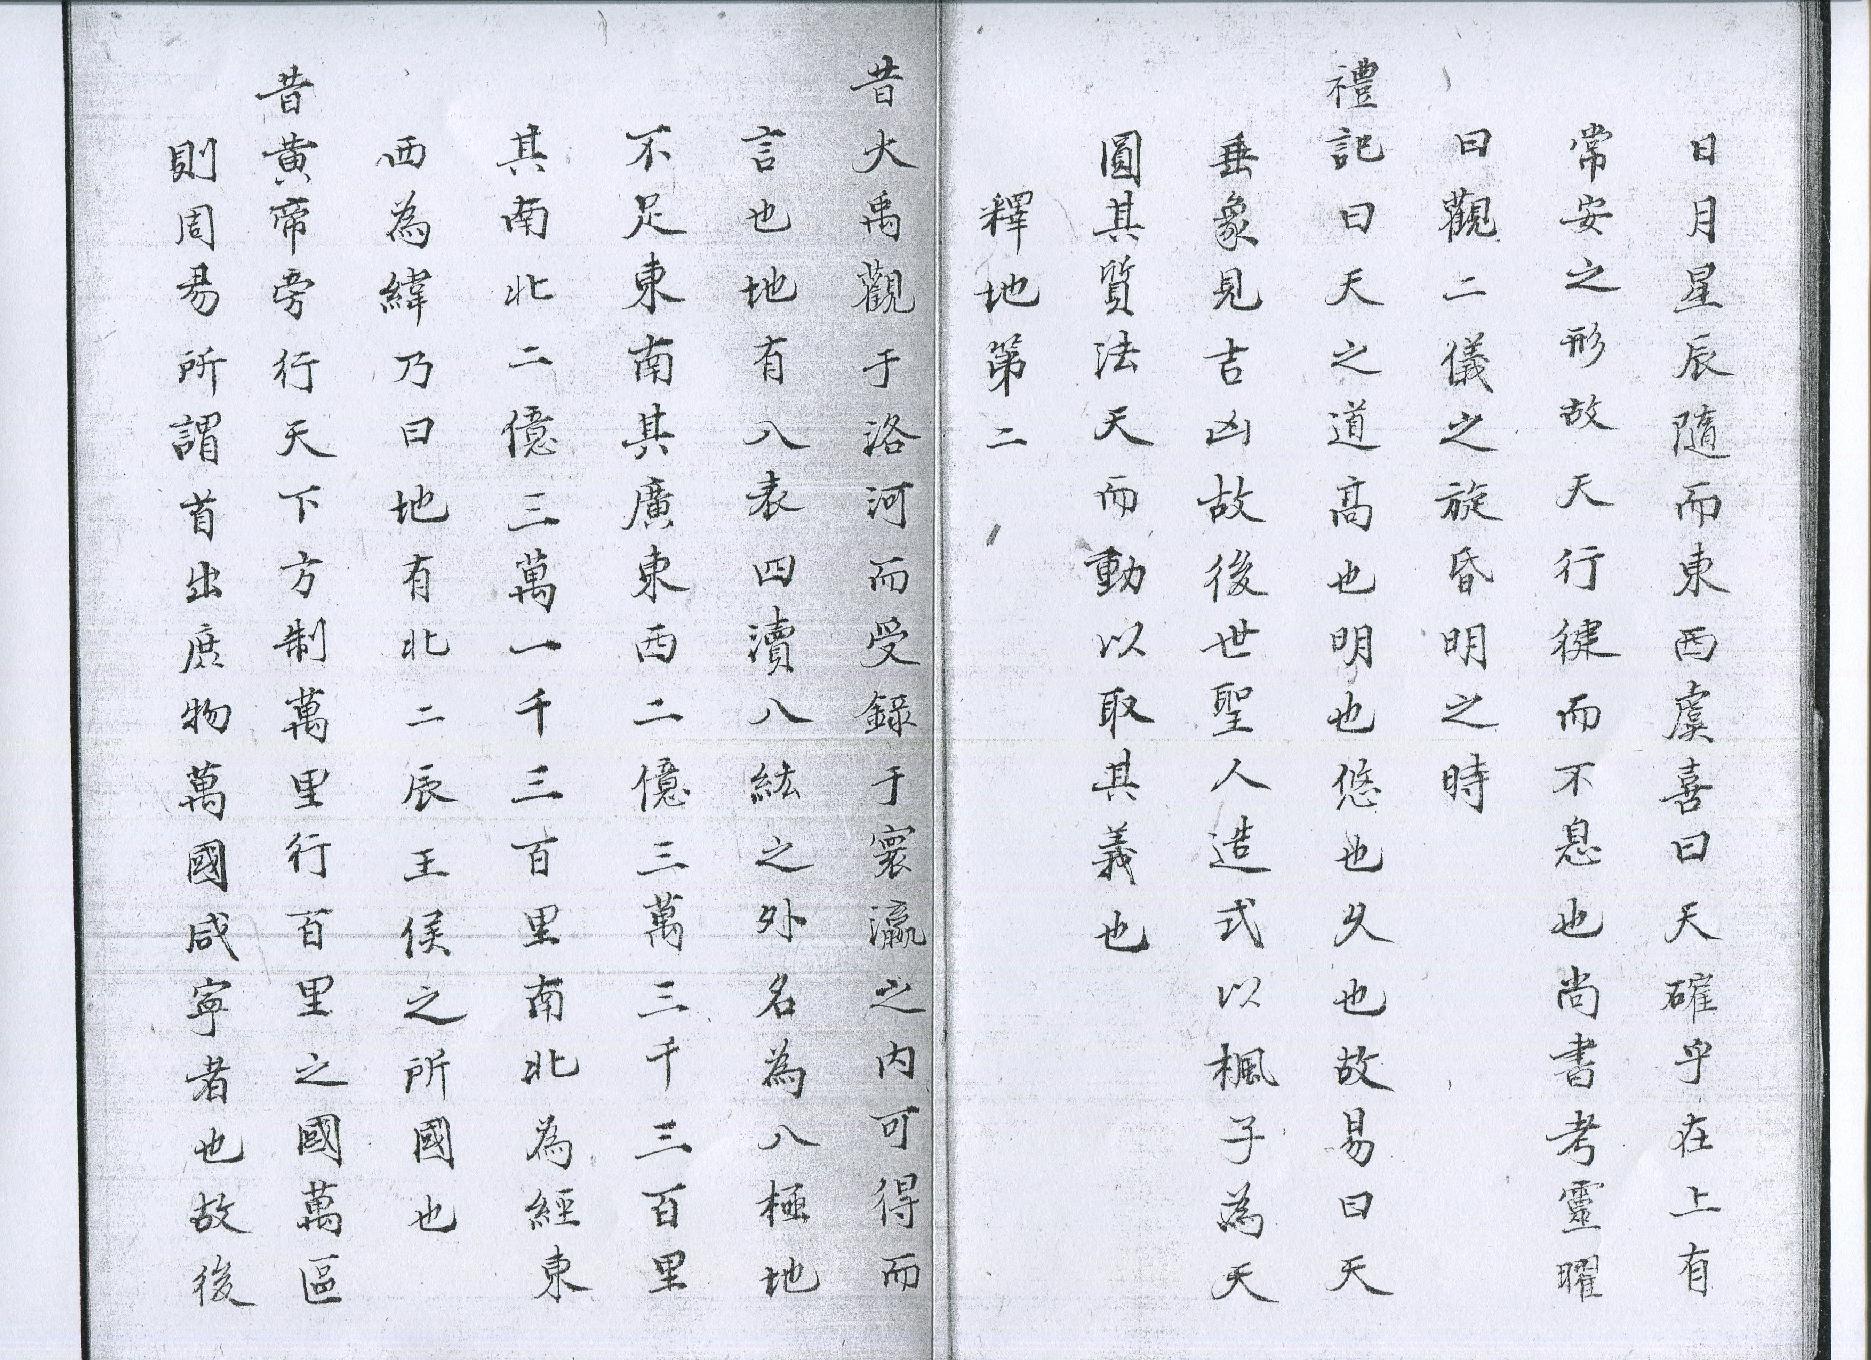 日月星辰隨而東西虞喜曰天確乎在上有
常安之形故天行健而不息也尚書考靈曜
曰觀二儀之旋昏明之時
禮記曰天之道高也明也悠也久也故易曰天
垂象見吉凶故後世聖人造式以楓子為天
圓其質法天而動以取其義也
釋地第二
昔大禹觀于洛河而受錄于寰瀛之内可得而
言也地有八表四瀆八紘之外名為八極地
不足東南其廣東西二億三萬三千三百里
其南北二億三萬一千三百里南北為經東
西為緯乃曰地有北二辰王侯之所國也
昔黄帝旁行天下方制萬里行百里之國萬區
則周易所謂首出庶物萬國咸寧者也故後